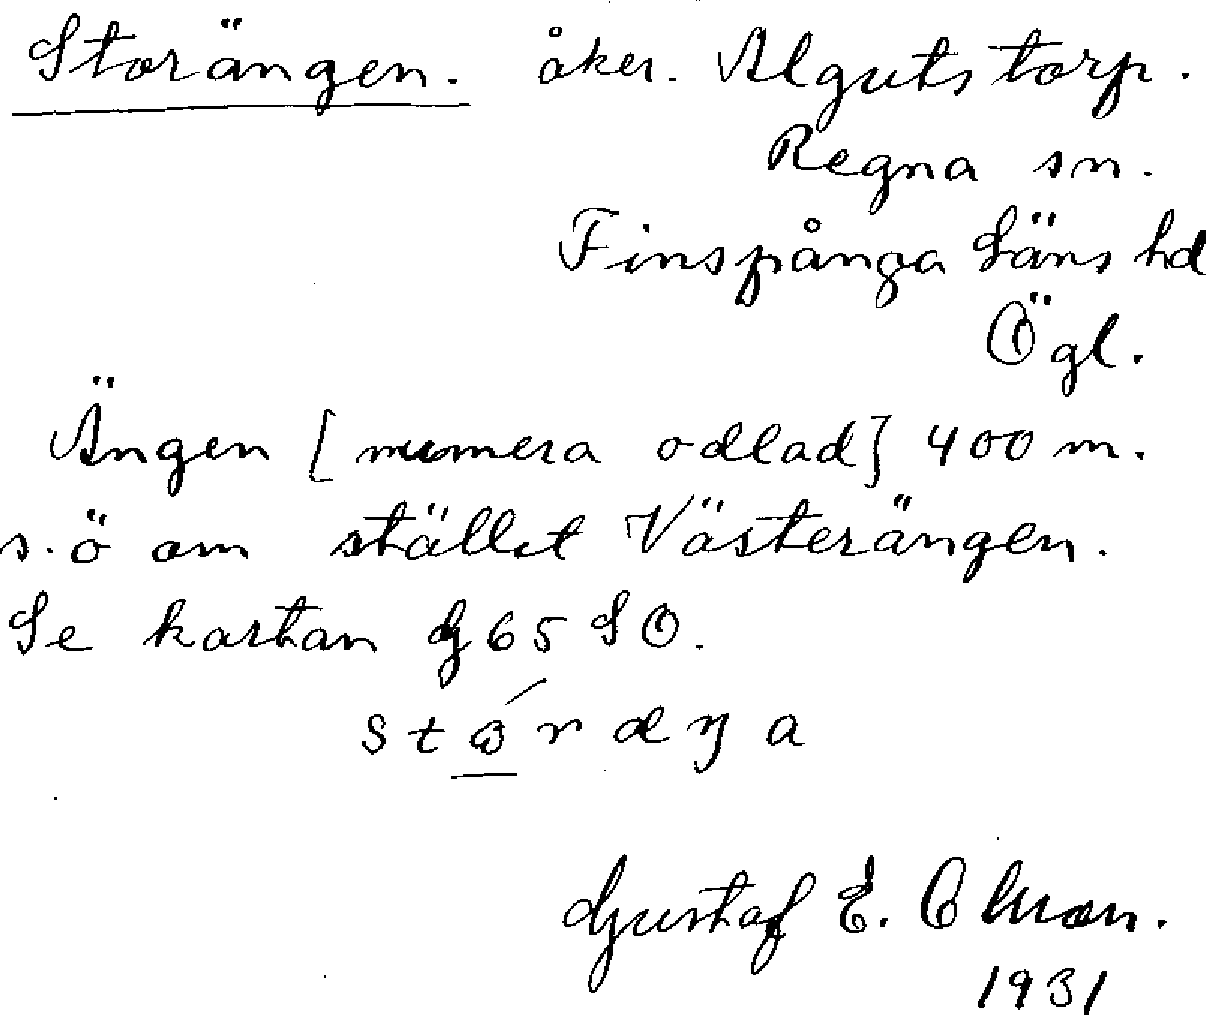 Storängen. åker. Algutstorp.
Regna sn.
Finspånga Läns hd
Ögl.
Ängen [numera odlad] 400 m.
s.ö om stället Västerängen.
Se kartan G 65 SO.
stó̲ræŋa
Gustaf E. Olsson.
1931